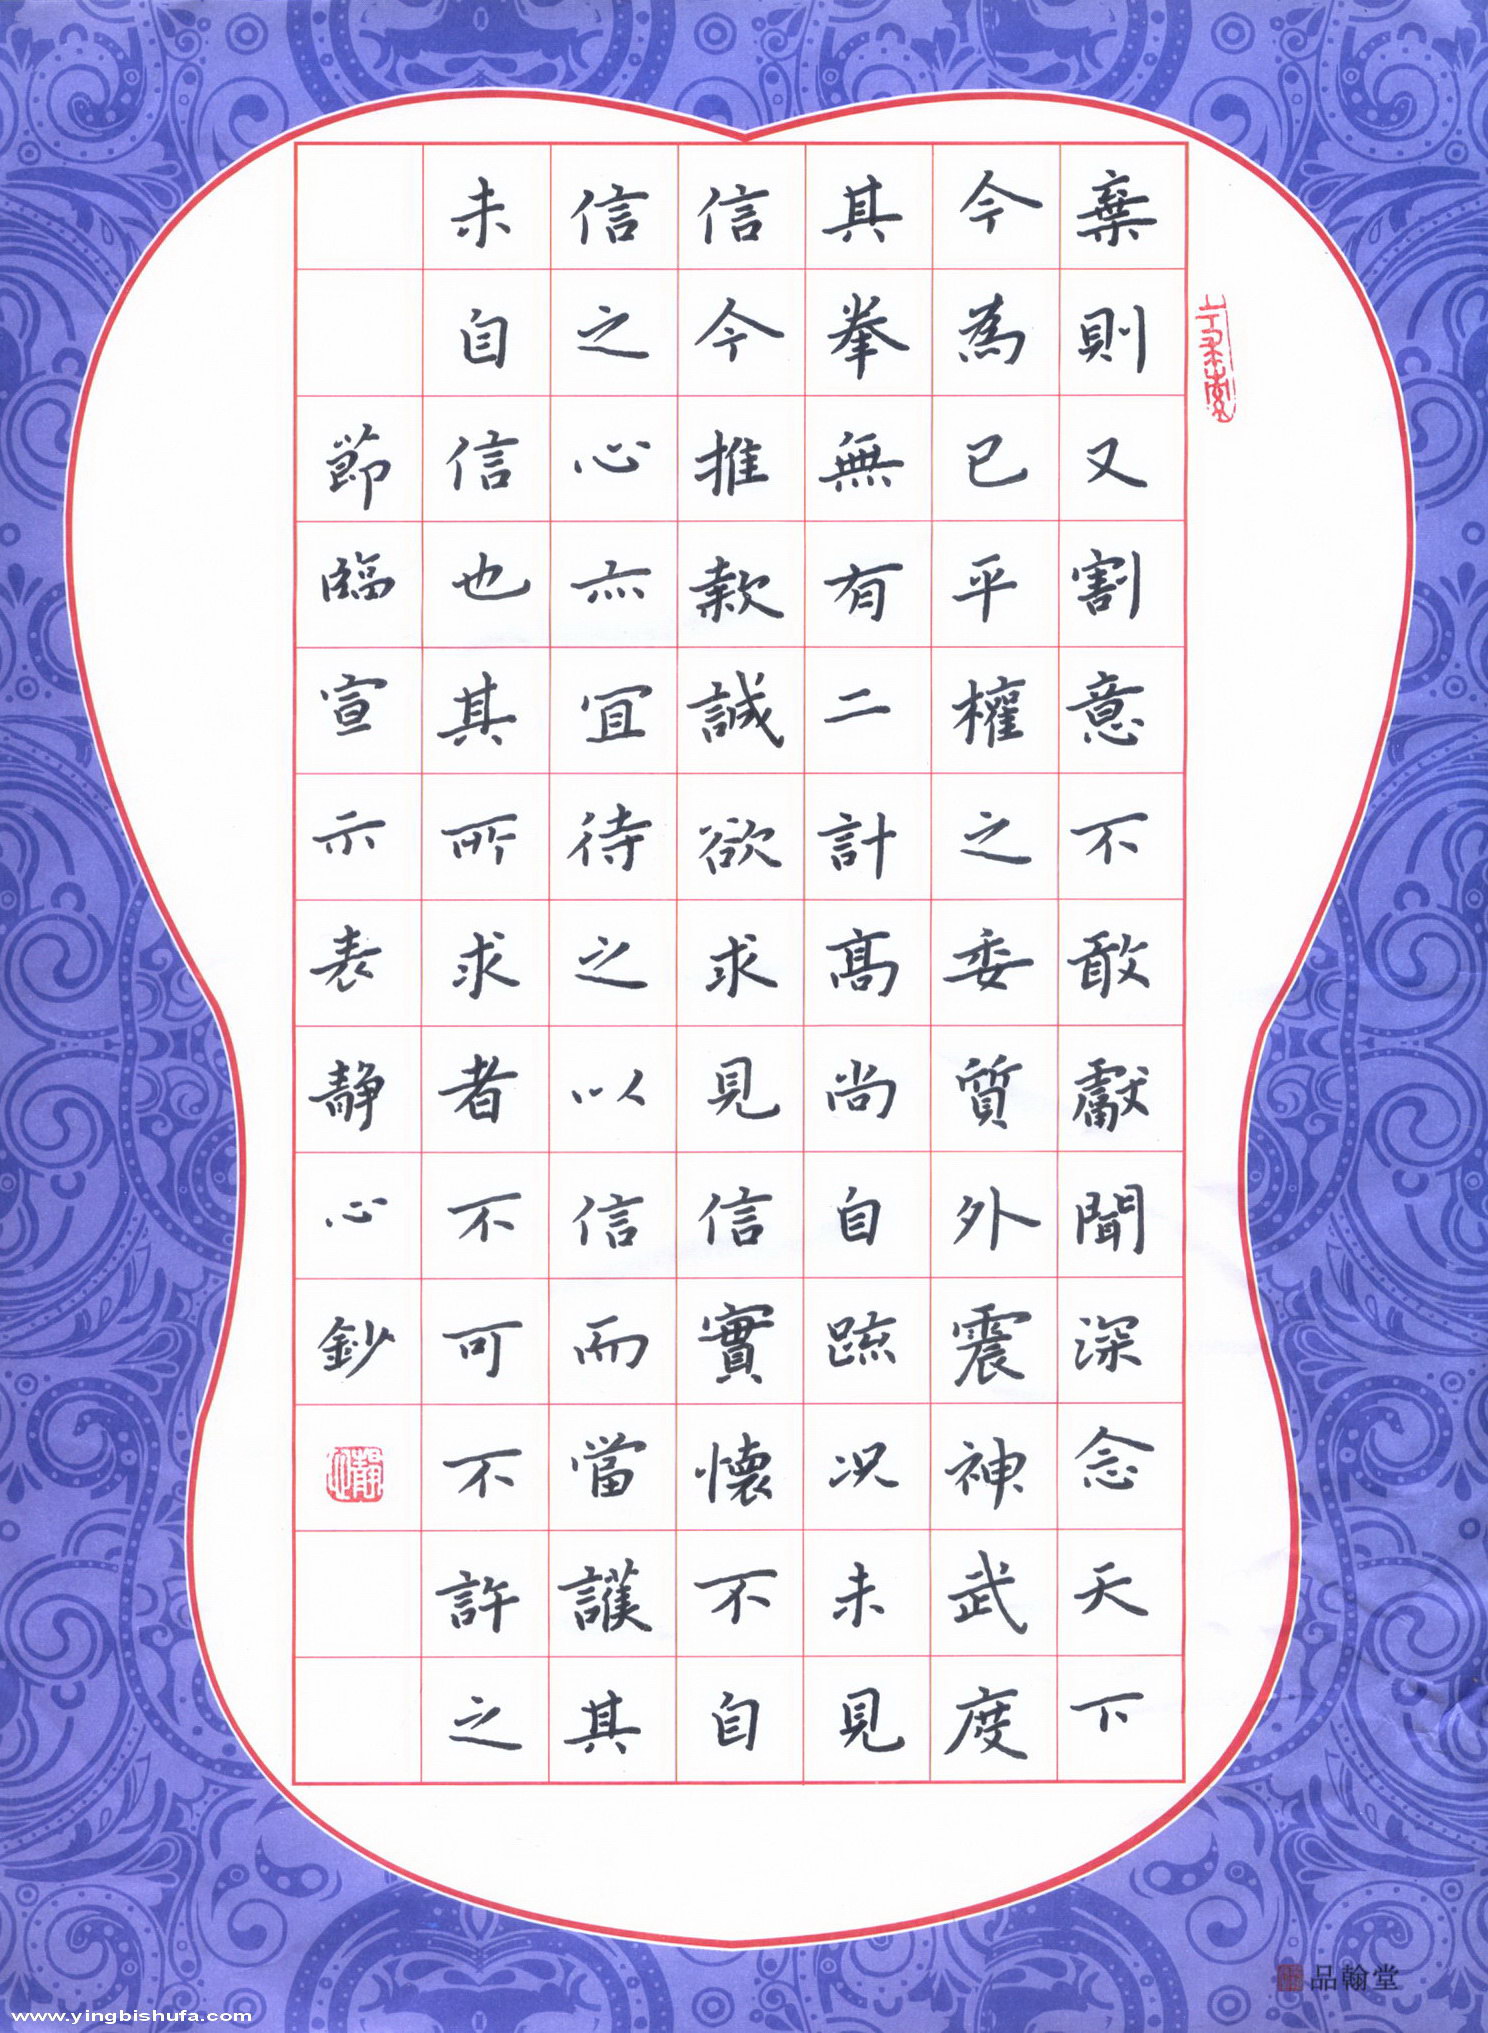 棄則又割意不敢獻聞深念天下
今為已平權之委質外震神武度
其拳無有二計高尚自疏況未見
信今推款誠欲求見信實懷不自
信之心亦宜待之以信而當護其
未自信也其所求者不可不許之
節臨宣示表靜心鈔
品翰堂
www.yingbishufa.com